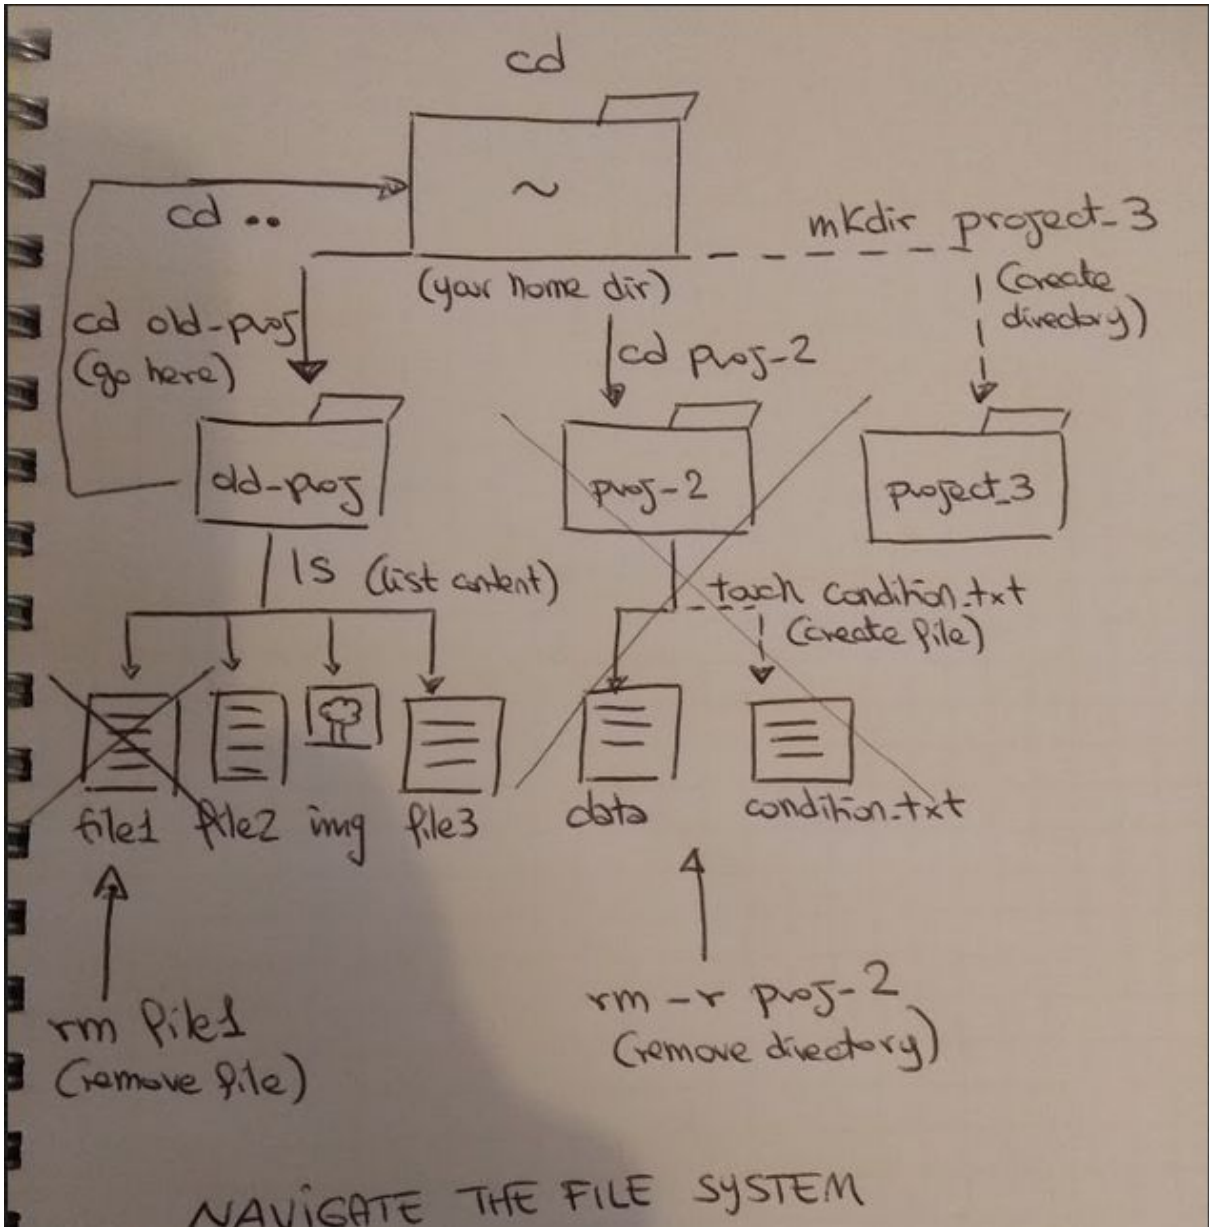 cd
~
cd ..
mkdir project_3
(your home dir)
(create
directory)
cd old-proj
(go here)
cd proj-2
old-proj
proj-2
project_3
ls (list content)
touch condition.txt
(create file)
file1 file2 img file3
data
condition.txt
rm file1
(remove file)
rm -r proj-2
(remove directory)
NAVIGATE THE FILE SYSTEM